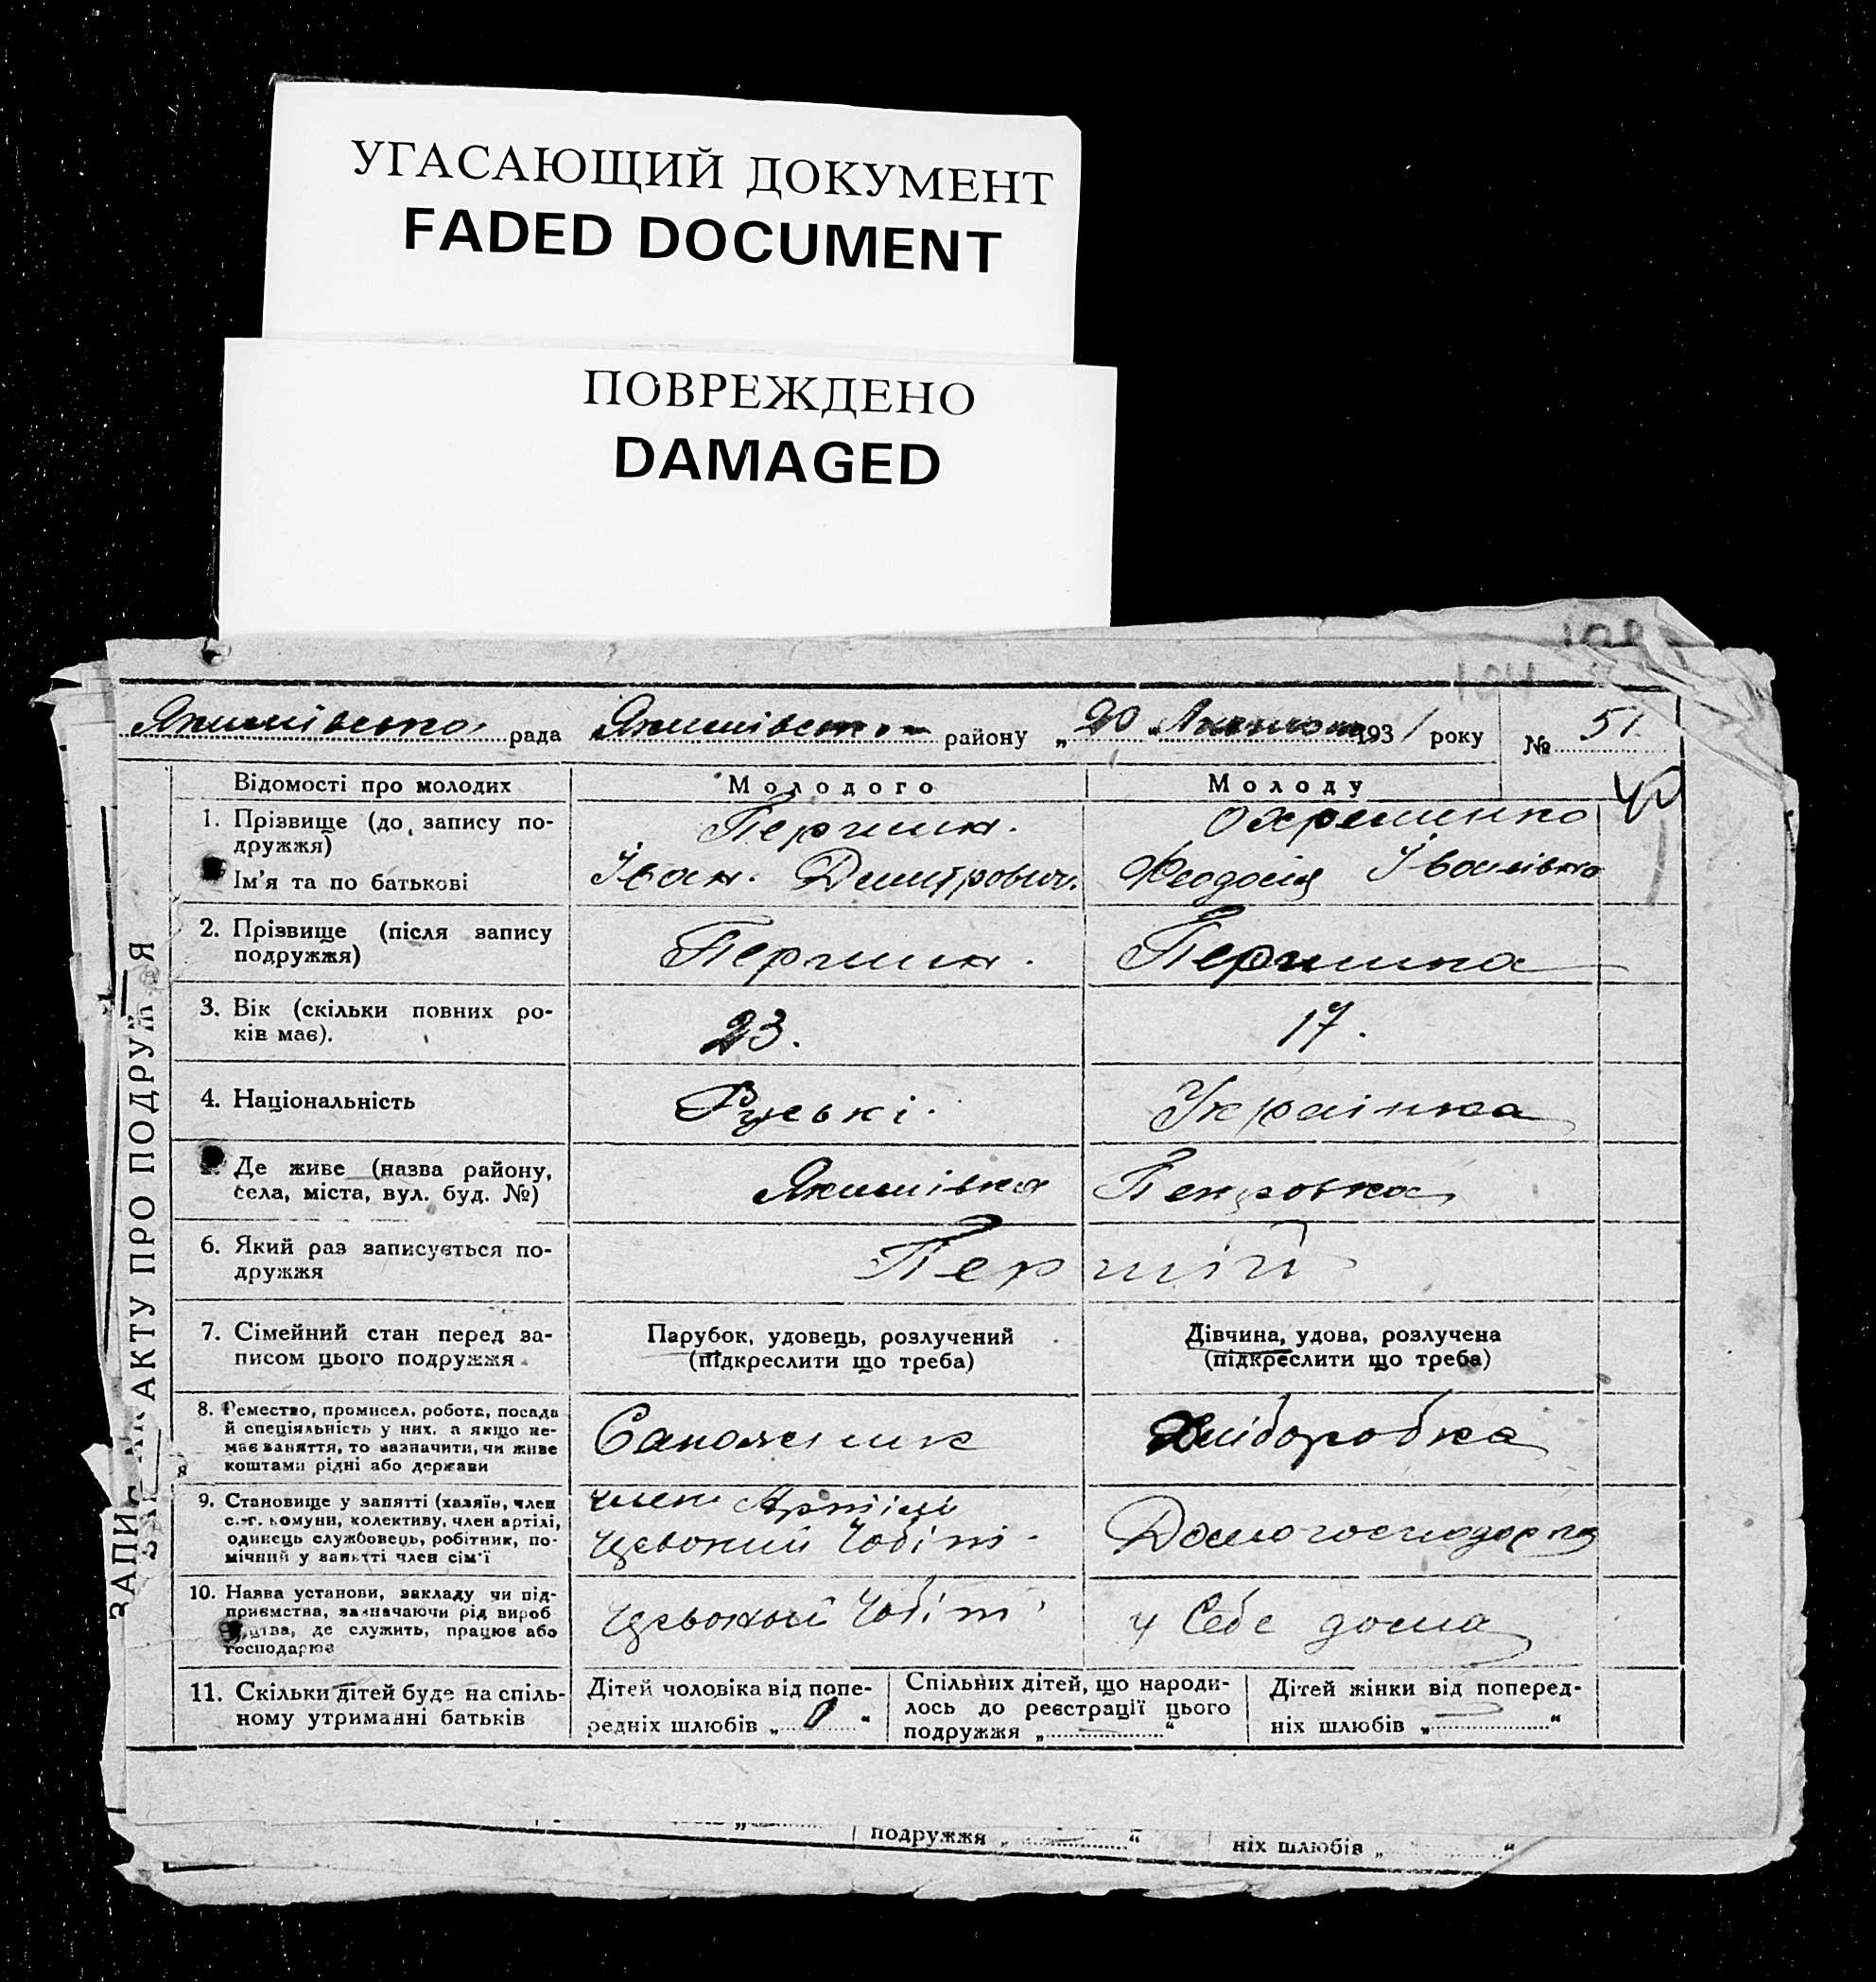 УГАСАЮЩИЙ ДОКУМЕНТ
FADED DOCUMENT
ПОВРЕЖДЕНО
DAMAGED
Якимівська рада Якимівського району „20 1931 року № 51
ЗАПИС АКТУ ПРО ПОДРУЖЖЯ
Відомості про молодих Молодого Молоду
1. Прізвище (до запису по-
дружжя)
Першин. Охрименко
Ім'я та по батькові
Іван. Дмитрович. Феодосія Іванівна
2. Прізвище (після запису
подружжя)
Першин. Першина
3. Вік (скільки повних ро-
ків має).
23. 17.
4. Національність Руські. Українка
Де живе (назва району,
села, міста, вул. буд. №)
Якимівка Петровка
6. Який раз записується по-
дружжя
Перший
7. Сімейний стан перед за-
писом цього подружжя
Парубок, удовець, розлучений
(підкреслити що треба)
Дівчина, удова, розлучена
(підкреслити що треба)
8. Ремество, промисел, робота, посада
й спеціяльність у них, а якщо не-
має заняття, то зазначити, чи живе
коштами рідні або держави
Сапожник Хліборобка
9. Становище у занятті (хазяїн, член
с.-г. комуни, колективу, член артілі,
одинець службовець, робітник, по-
мічний у занятті член сім'ї
член Артілі
Чобіт. Домогосподарка
10. Назва установи, закладу чи під-
приємства, зазначаючи рід вироб
ництва, де служить, працює або
господарює
Чобіт у Себе дома
11. Скільки дітей буде на спіль-
ному утриманні батьків
Дітей чоловіка від попе-
редніх шлюбів „ 0 “
Спільних дітей, що народи-
лось до реєстрації цього
подружжя „ — “
Дітей жінки від поперед-
ніх шлюбів „ — “
подружжя „ “ ніх шлюбів „ “